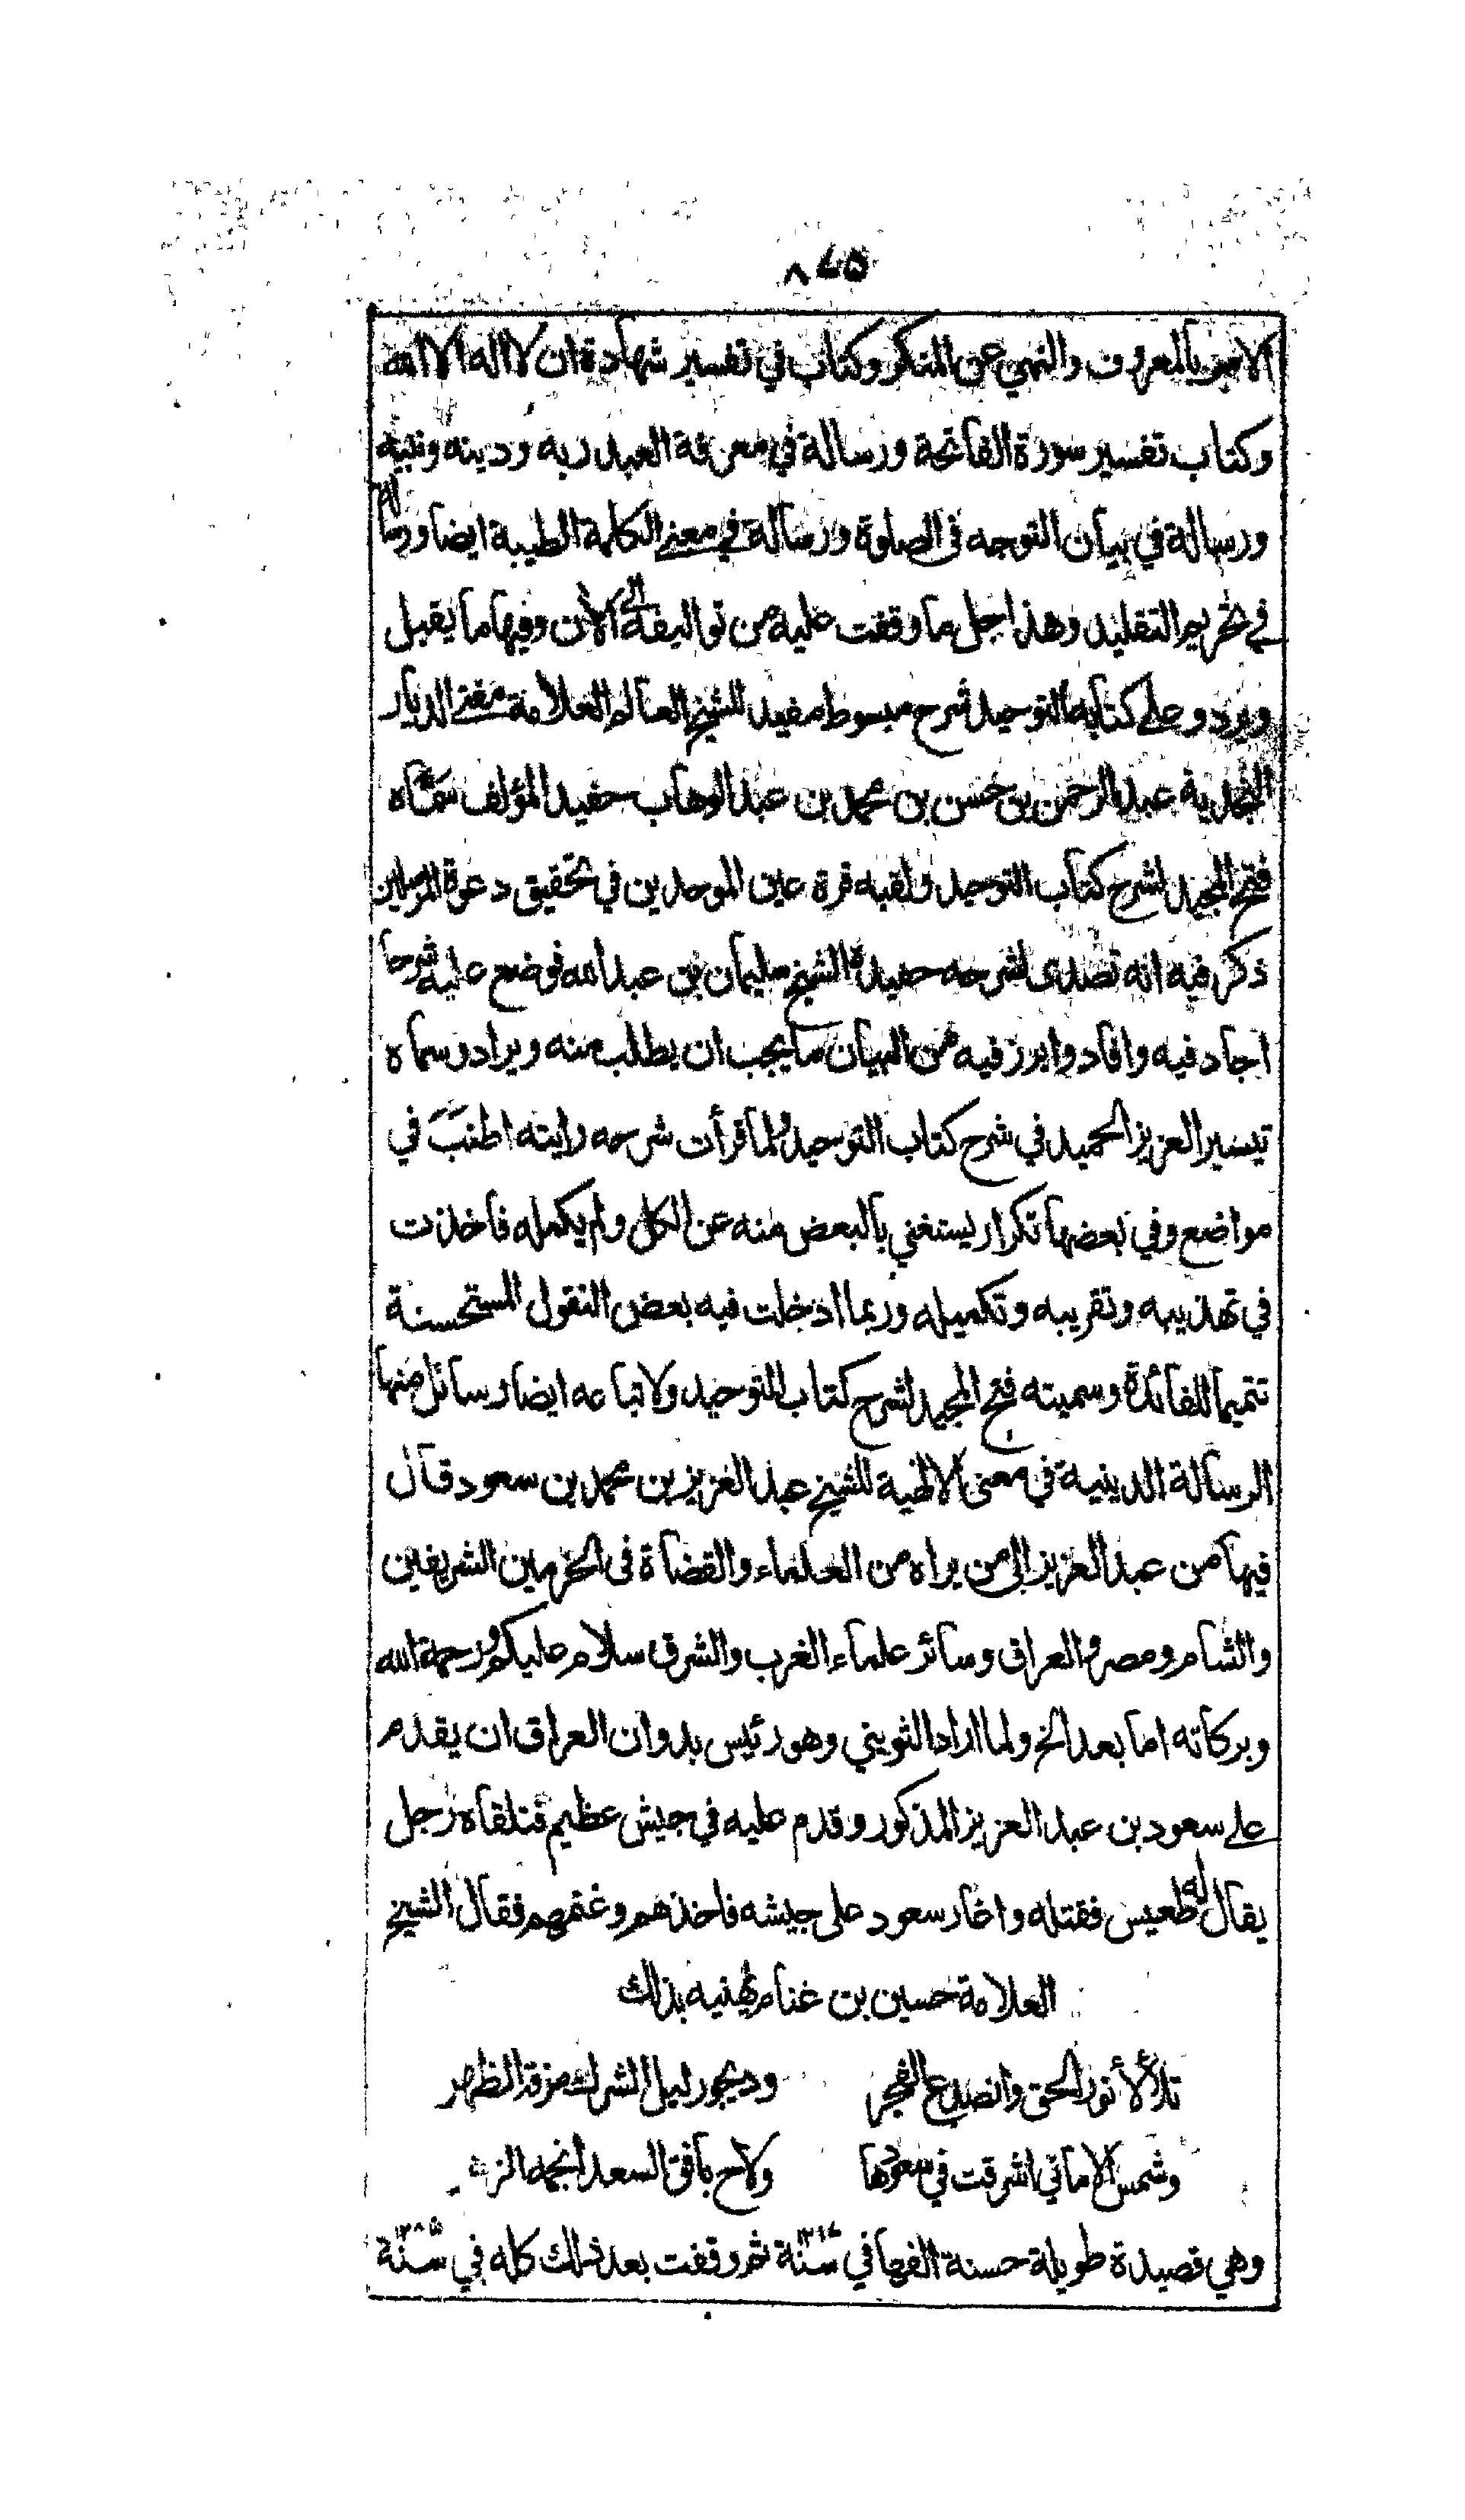 ٨٤٥
الامر بالمعروف والنهي عن المنكر وكتاب في تفسير شهادة ان لا اله الا الله
وكتاب تفسير سورة الفاتحة ورسالة في معرفة العبد ربه ودينه ونبيه
ورسالة في بيان التوجه فى الصلوة ورسالة في معنى الكلمة الطيبة ايضا ورسالة
في تحريم التقليد وهذا جل ما وقفت عليه من تواليفه الى الأن وفيها ما يقبل
ويرد وعلى كتابه التوحيد شرح مبسوط مفيد للشيخ العالم العلامة مفتي الديار
النجدية عبد الرحمن بن حسن بن محمد بن عبد الوهاب حفيد المؤلف سماه
فتح المجيد لشرح كتاب التوحيد ولقبه قرة عين الموحدين في تحقيق دعوة المرسلين
ذكر فيه انه تصدى لشرحه حفيده الشيخ سليمان بن عبد الله فوضع عليه شرحا
اجاد فيه وافاد وابرز فيه من البيان ما يجب ان يطلب منه ويراد وسماه
تيسير العزيز الحميد في شرح كتاب التوحيد ولما قرأت شرحه رايته اطنب في
مواضع وفي بعضها تكرار يستغني بالبعض منه عن الكل ولم يكمله فاخذت
في تهذيبه وتقريبه وتكميله وربما ادخلت فيه بعض النقول المستحسنة
تتميما للفائدة وسميته فتح المجيد لشرح كتاب التوحيد ولاتباعه ايضا رسائل منها
الرسالة الدينية في معنى الالهية للشيخ عبد العزيز بن محمد بن سعود قال
فيها من عبد العزيز الى من يراه من العلماء والقضاة فى الحرمين الشريفين
والشام ومصر والعراق وسائر علماء الغرب والشرق سلام عليكم ورحمة الله
وبركاته اما بعد الخ ولما اراد الثويني وهو رئيس بدوان العراق ان يقدم
على سعود بن عبد العزيز المذكور وقدم عليه في جيش عظيم فتلقاه رجل
يقال له طعيس فقتله واغار سعود على جيشه فاخذهم وغنمهم فقال الشيخ
العلامة حسين بن غنام يهنيه بذلك
تلألأ نور الحق وانصدع الفجر ودیجور ليل الشرك مزقه الظهر
وشمس الاماني اشرقت في سعودها ولاح بافق السعد انجمه الزهر
وهي قصيدة طويلة حسنة الفها في سنة ثم وقفت بعد ذلك كله في سنة